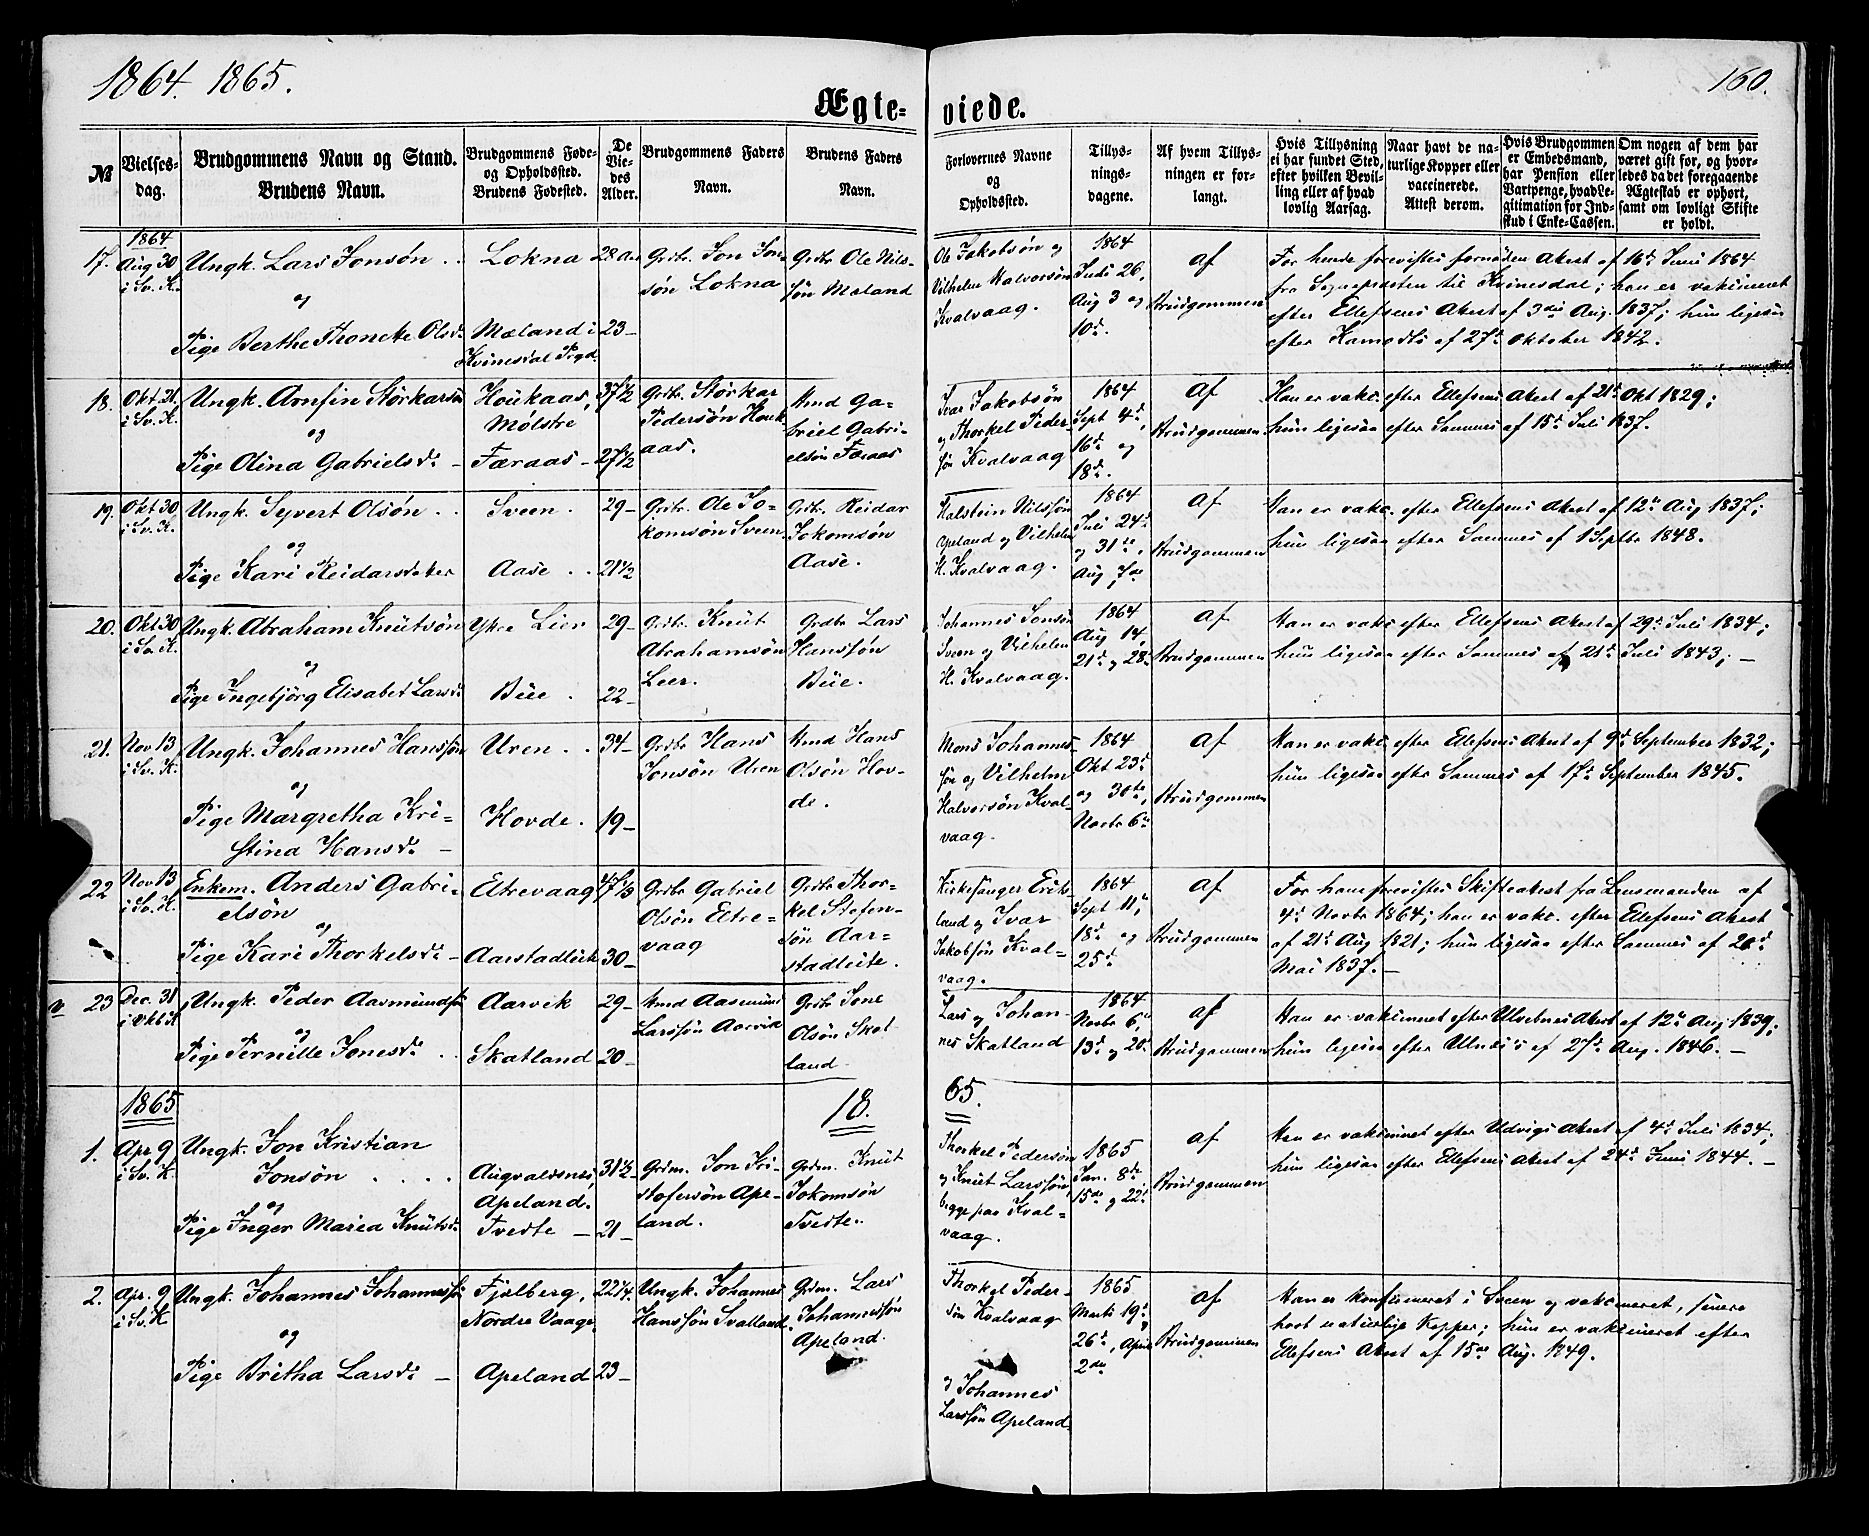 1864. 1865.
160.
Ægte-
viede.
№
Vielses-
dag.
Brudgommens Navn og Stand.
Brudens Navn.
BrudgommensFøde-
og Opholdssted.
Brudens Fødested.
De
Vie-
des
Alder.
Brudgommens Faders
Navn.
Brudens Faders
Navn.
Forlovernes Navne
og
Opholdssted.
Tillys-
nings-
dagene.
Af hvem Tillys-
ningen er for-
langt.
Hvis Tillysning
ei har fundet Sted,
efter hvilken Bevil-
ling eller af hvad
lovlig Aarsag.
Naar havt de na-
turlige Kopper eller
vaccinerede.
Attest derom.
Hvis Brudgommen
er Embedsmand,
har Pension eller
Vartpenge, hvad Le-
gitimation for Ind-
skud i Enke-Cassen.
Om nogen af dem har
været gift før, og hvor-
ledes da det foregaaende
Ægteskab er ophørt,
samt om lovligt Skifte
er holdt.
1864
17.
Aug 30
i Sv. K.
Ungk. Lars Jonsøn
og
Pige Berthe Thoncke Olsdr
Lokna
Mæland i
Kvinesdal Pgd
28 Aar
23
Grdbr. Jon Jon-
søn Lokna
Grdbr Ole Nils-
søn Mæland
Ole Jakobsøn og
Vilhelm Halvorsøn
Kvalvaag.
1864
Juli 26,
Aug 3 og
10de
af
Brudgommen
For hende forevistes fornøden Attest af 16de Juni 1864
fra Sognepræsten til Kvinesdal; han er vakcineret
efter Ellefsens Attest af 3die Aug. 1837; hun ligesaa
efter Kamodts af 27de Oktober 1842.
18.
Okt 21.
i Sv. K.
Ungk. Arnfin Størkarsøn
og
Pige Olina Gabrielsdr
Houkaas,
Mølstre
Færaas
37 1/2
27 1/2
Grdbr. Størkar
Pedersøn Houk-
aas.
Hmd Ga-
briel Gabri-
elsøn Færaas
Ivar Jakobsøn
og Thorkel Peder-
søn Kvalvaag
1864
Sept 4de,
16de og
18de.
af
Brudgommen
Han er vakc. efter Ellefsens Attest af 21de Okt 1829;
hun ligesaa efter Sammes af 15de Juli 1837.
19.
Okt 30
i Sv. K.
Ungk. Syvert Olsøn
og
Pige Kari Reidarsdatter
Sveen
Aase
29
21 1/2
Grdbr. Ole Jo-
komsøn Sveen
Grdbr. Reidar
Jokomsøn
Aase.
Halstein Nilssøn
Apeland og Vilhelm
H. Kvalvaag.
1864
Juli 24de
og 31te,
Aug 7de
af
Brudgommen
Han er vakc. efter Ellefsens Attest af 12te Aug 1837;
hun ligesaa efter Sammes af 1 Septbr 1848.
20.
Okt 30
i Sv. K.
Ungk. Abraham Knutsøn
og
Pige Ingebjörg Elisabet Larsdr
Ytre Lier
Büe
29
22
Grdbr. Knut
Abrahamsøn
Leer.
Grdbr Lars
Hanssøn
Büe.
Johannes Jonsøn
Sveen og Vilhelm
H. Kvalvaag.
1864
Aug 14,
21de og 28de
af
Brudgommen
Han er vakc efter Ellefsens Attest af 29de Juli 1834;
hun ligesaa efter Sammes af 21de Juli 1843;
21.
Nov 13
i Sv. K.
Ungk. Johannes Hanssøn
og
Pige Margretha Kri-
stina Hansdr
Uren
Hovde
34
19
Grdbr Hans
Jonsøn Uren
Hmd Hans
Olsøn Hov-
de.
Mons Johannes-
søn og Vilhelm
Halvorsøn Kval-
vaag.
1864
Okt 23de
og 30te,
Novbr 6te
af
Brudgommen
Han er vakc. efter Ellefsens Attest af 9de September 1832;
hun ligesaa efter Sammes af 17de September 1845.
22
Nov 13
i Sv. K.
Enkem. Anders Gabri-
elsøn
og
Pige Kari Thorkelsdr
Eltrevaag
Aarstadleite
47 1/2
30
Grdbr Gabriel
Olsøn Eltre-
vaag
Grdbr Thor-
kel Stefen-
søn Aar-
stadleite.
Kirkesanger Eriks-
land og Ivar
Jakobsøn Kval-
vaag.
1864
Sept 11te
18de og
25de
af
Brudgommen
For ham forevistes Skifteattest fra Lensmanden af
4de Novbr 1864; han er vakc. efter Ellefsens Attest
af 21de Aug 1821; hun ligesaa efter Sammes af 20de
Mai 1837.
23
Dec. 31
Ungk. Peder Aasmundsøn
og
Pige Pernille Jonesdr
Aarvik
Skatland
29
20
Hmd Aasmund
Larssøn Aarvik
Grdbr Jone
Olsøn Skat-
land
Lars og Johan-
nes Skatland
1864
Novbr 6te,
13de og 20de
af
Brudgommen
Han er vakcineret efter Ulvetnes Attest af 12te Aug 1839;
hun ligesaa efter Ulnæs's af 27de Aug. 1846.
1865
18.
65.
1.
Apr 9
i Sv. K.
Ungk. Jon Kristian
Jonsøn
og
Pige Inger Maria Knutsdr
Augvaldsnes,
Apeland.
Tvedte
31 1/2
21
Grdm. Jon Kri-
stofersøn Ape-
land.
Grdm. Knut
Jokomsøn
Tvedte.
Thorkel Pedersøn
og Knut Larssøn,
begge paa Kval-
vaag.
1865
Jan. 8de
15de og 22de
af
Brudgommen
Han er vakcineret efter Udvigs Attest af 4de Juli 1834;
hun ligesaa efter Ellefsens Attest af 24de Juni 1844.
2.
Apr. 9
i Sv. K
Ungk. Johannes Johannessøn
og
Pige Britha Larsdr
Fjelberg,
Nordre Vaage.
Apeland
22 1/4.
23
Ungk. Johannes
Hanssøn Svalland.
Grdm. Lars
Johannessøn
Apeland.
Thorkel Peder-
søn Kvalvaag
og Johannes
Larssøn Apeland.
1865
Marts 19de,
26de, April
2den
af
Brudgommen
Han er konfirmeret i Sveen og vakcineret, senere
havt naturlige Kopper; hun er vakcineret efter
Ellefsens Attest af 15de Aug. 1849.